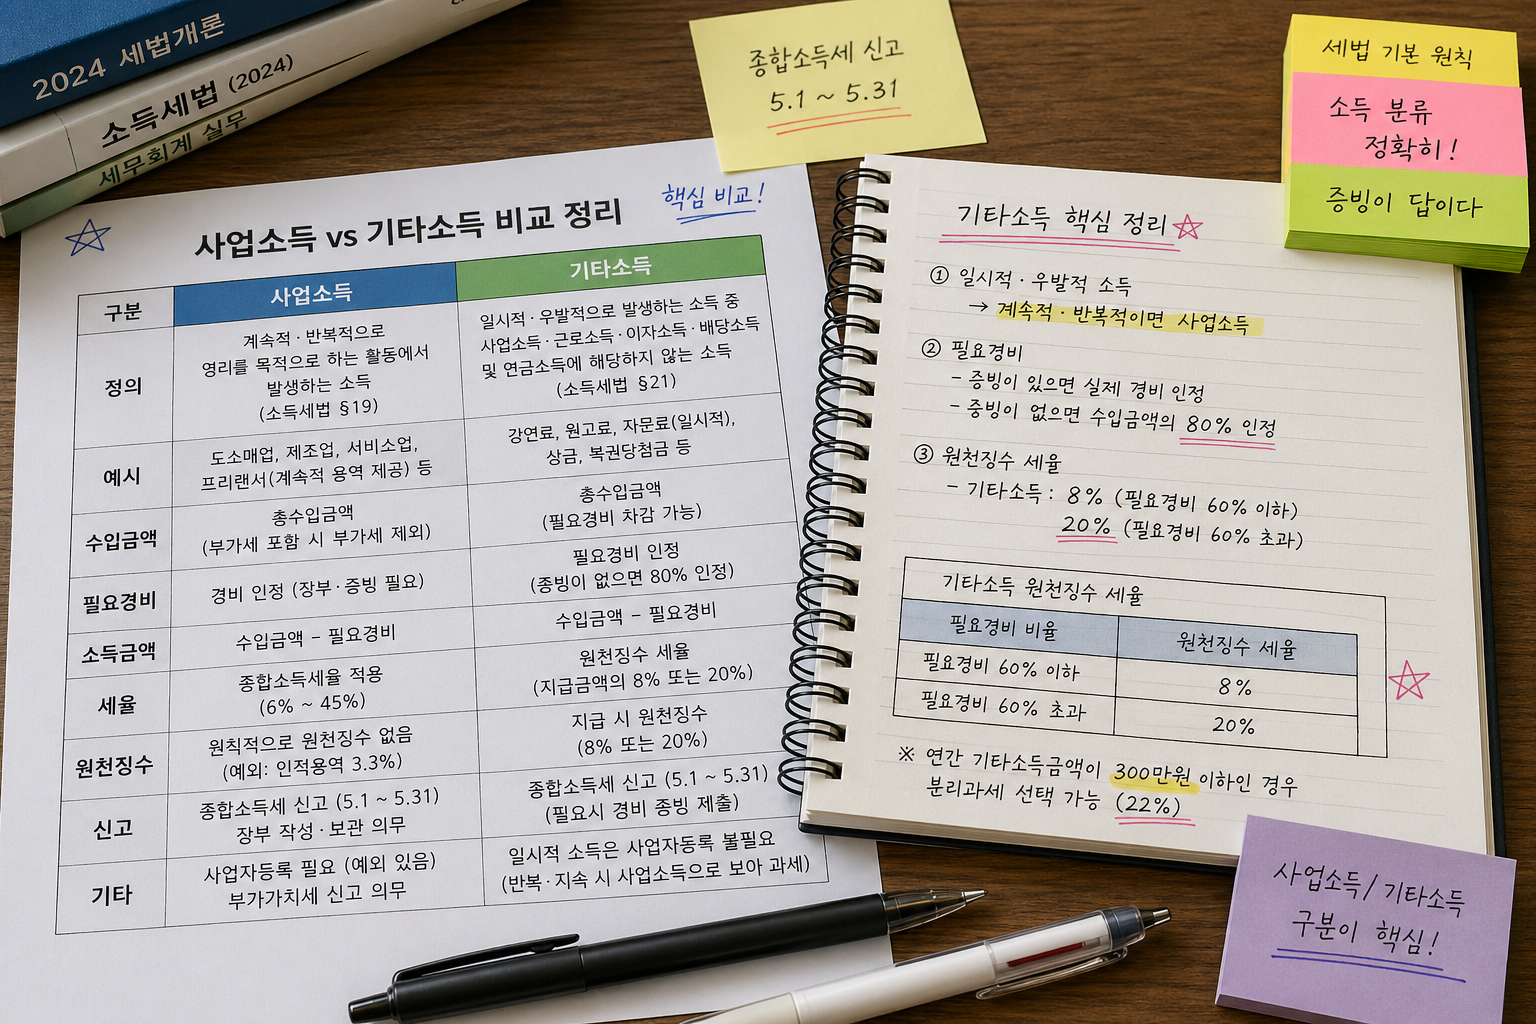 2024 세법개론
소득세법 (2024)
세무회계 실무
종합소득세 신고
5.1 ~ 5.31
세법 기본 원칙
소득 분류
정확히!
증빙이 답이다
핵심 비교!
사업소득 vs 기타소득 비교 정리
구분 사업소득 기타소득
정의
계속적·반복적으로
영리를 목적으로 하는 활동에서
발생하는 소득
(소득세법 §19)
일시적·우발적으로 발생하는 소득 중
사업소득·근로소득·이자소득·배당소득
및 연금소득에 해당하지 않는 소득
(소득세법 §21)
예시
도소매업, 제조업, 서비소업,
프리랜서(계속적 용역 제공) 등
강연료, 원고료, 자문료(일시적),
상금, 복권당첨금 등
수입금액
총수입금액
(부가세 포함 시 부가세 제외)
총수입금액
(필요경비 차감 가능)
필요경비
경비 인정 (장부·증빙 필요)
필요경비 인정
(종빙이 없으면 80% 인정)
소득금액
수입금액 – 필요경비
수입금액 – 필요경비
세율
종합소득세율 적용
(6% ~ 45%)
원천징수 세율
(지급금액의 8% 또는 20%)
원천징수
원칙적으로 원천징수 없음
(예외: 인적용역 3.3%)
지급 시 원천징수
(8% 또는 20%)
신고
종합소득세 신고 (5.1 ~ 5.31)
장부 작성·보관 의무
종합소득세 신고 (5.1 ~ 5.31)
(필요시 경비 종빙 제출)
기타
사업자등록 필요 (예외 있음)
부가가치세 신고 의무
일시적 소득은 사업자동록 불필요
(반복·지속 시 사업소득으로 보아 과세)
기타소득 핵심 정리
① 일시적·우발적 소득
→ 계속적·반복적이면 사업소득
② 필요경비
– 증빙이 있으면 실제 경비 인정
– 중빙이 없으면 수입금액의 80% 인정
③ 원천징수 세율
– 기타소득: 8% (필요경비 60% 이하)
20% (필요경비 60% 초과)
기타소득 원천징수 세율
필요경비 비율 원천징수 세율
필요경비 60% 이하 8%
필요경비 60% 초과 20%
※ 연간 기타소득금액이 300만원 이하인 경우
분리과세 선택 가능 (22%)
사업소득/기타소득
구분이 핵심!